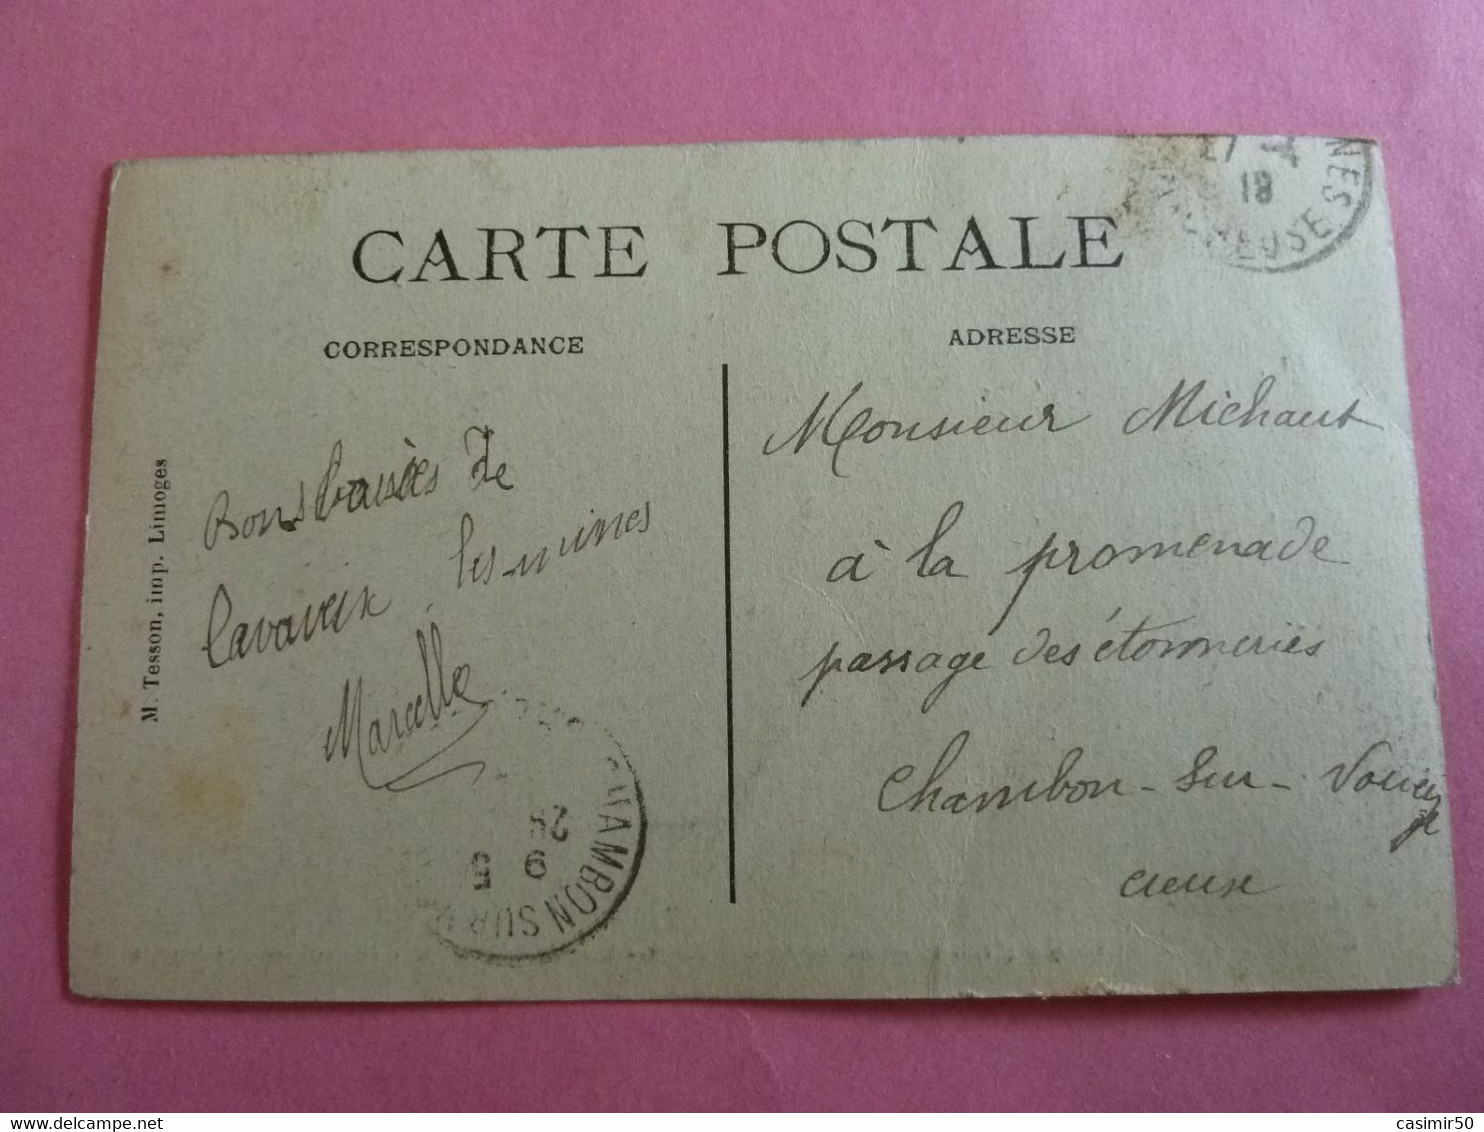 CARTE POSTALE
CORRESPONDANCE
ADRESSE
M. Tesson, imp. Limoges
Bons baisées de
lavaveix les mines
Marcelle
Monsieur Michaut
à la promenade
passage des étonneries
Chambon-Sur-Voueize
creuse
27
18
NES
CREUSE
CHAMBON SUR
28
9
casimir50